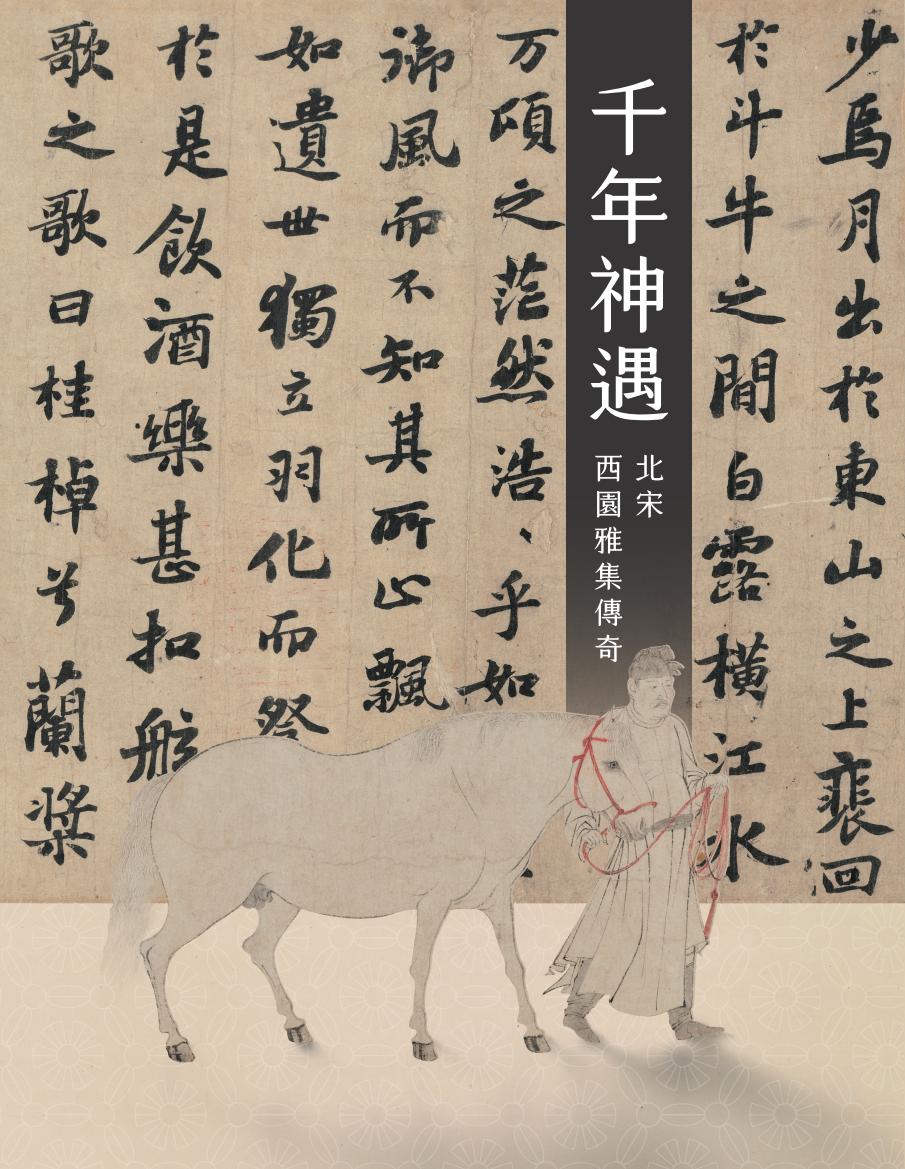 少焉月出於東山之上裵回
於斗牛之間白露橫江水
千年神遇
北宋
西園雅集傳奇
万頃之茫然浩、乎如
御風而不知其所止飄
如遺世獨立羽化而登
於是飲酒樂甚扣舷
歌之歌曰桂棹兮蘭槳